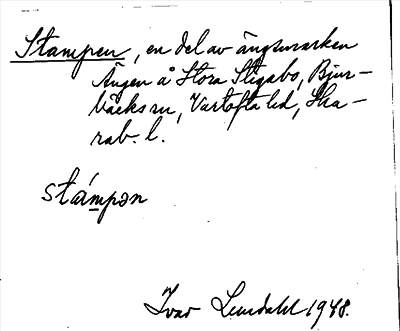 Stampen, en del av ängsmarken
Ängen å Stora Stigabo, Bjur-
bäcks sn, Vartofta hd, Ska-
rab. l.
stámpən
Ivar Lundahl 1948.